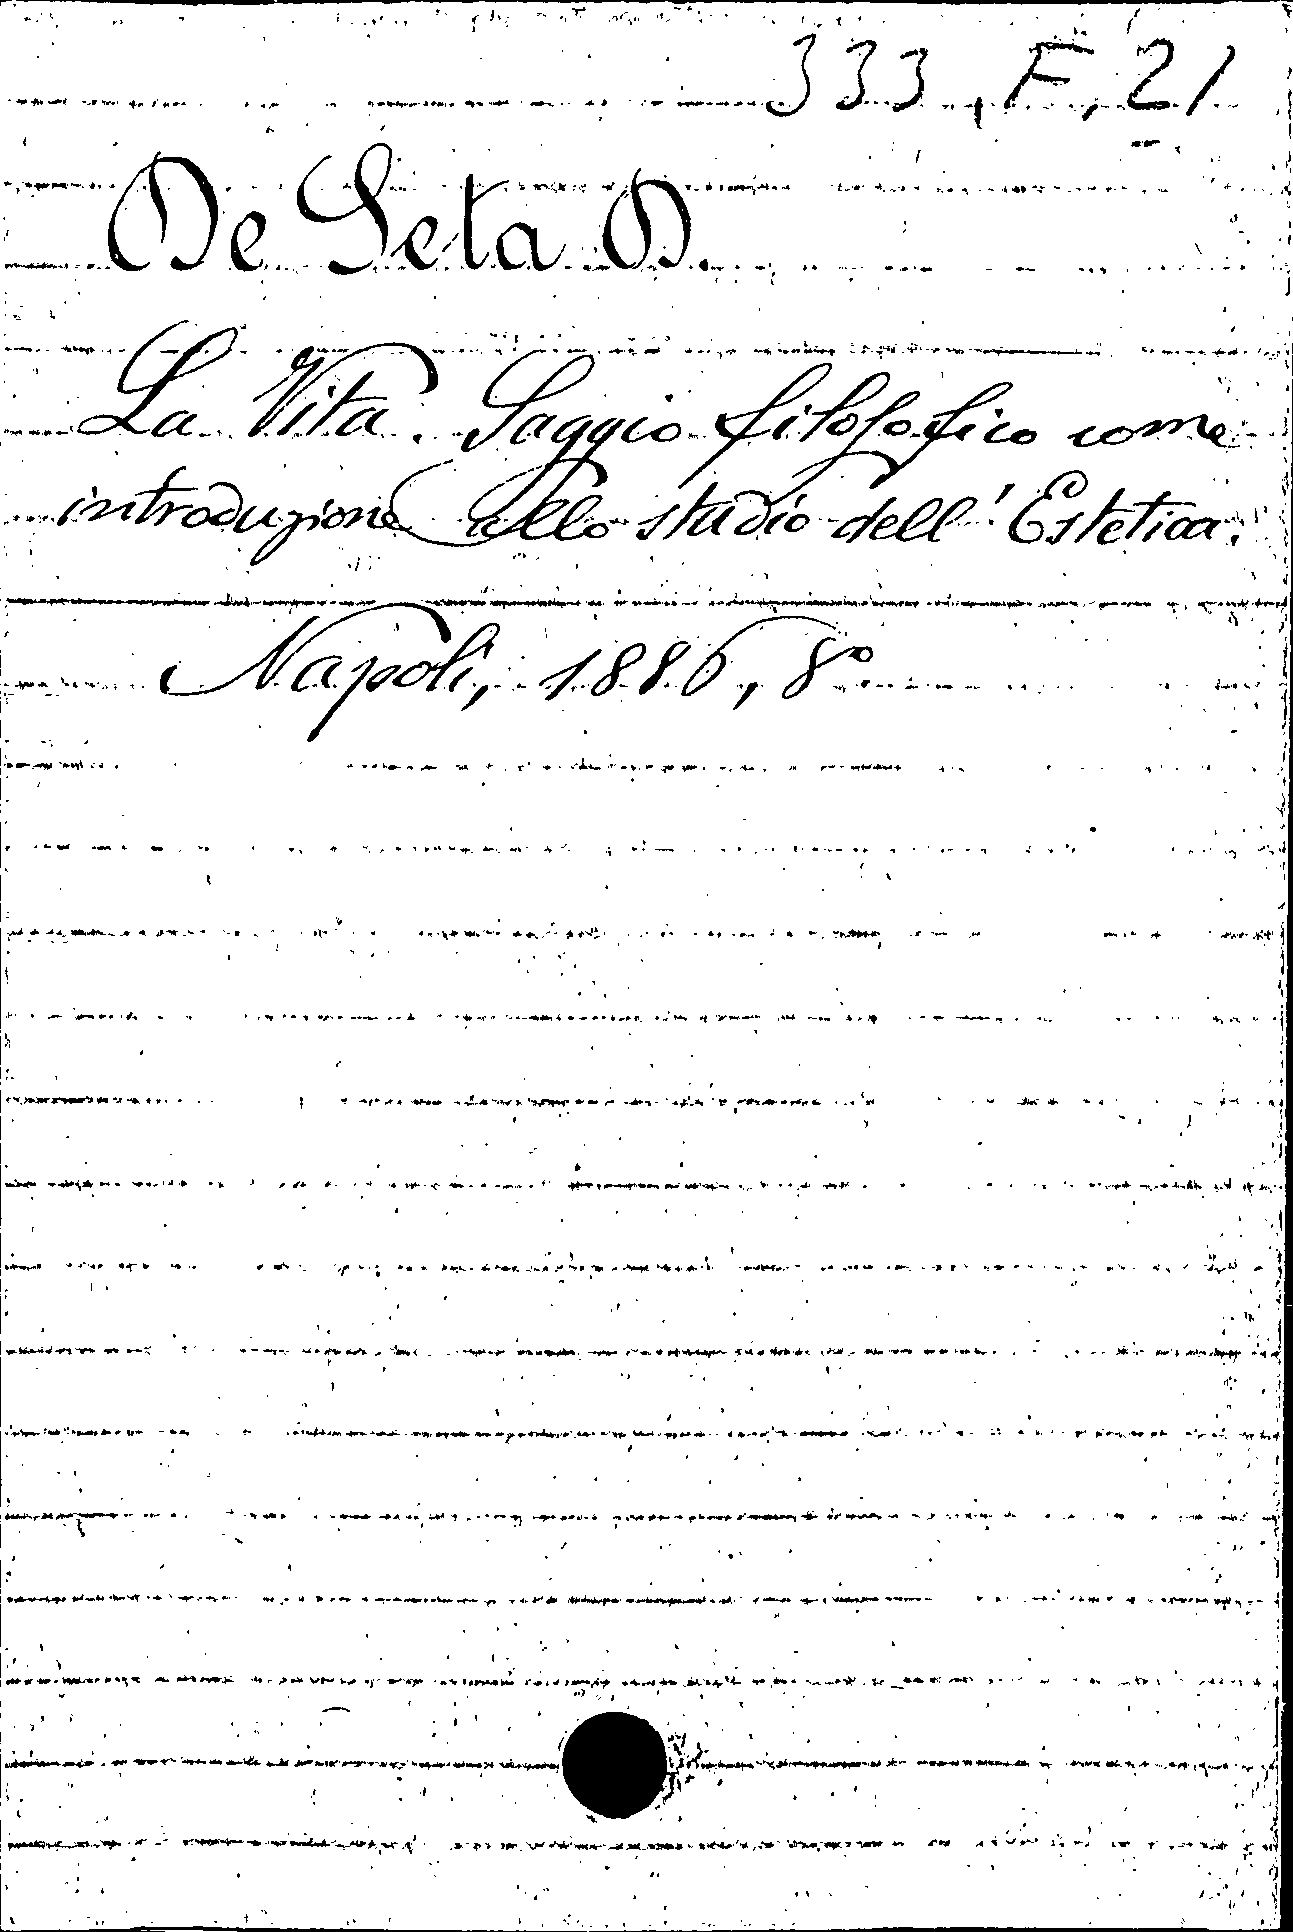 333, F, 21
De Seta D.
La Vita. Saggio filosofico come
introduzione allo studio dell' Estetica.
Napoli, 1886, 8°